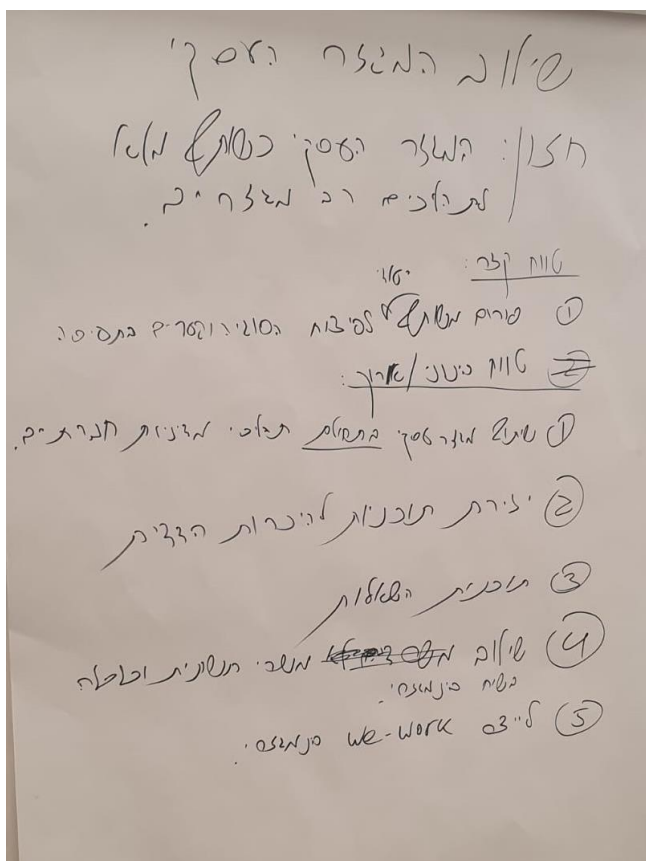 שילוב המגזר העסקי
חזון: המגזר העסקי כשותף מלא
לתהליכים רב מגזריים.
טווח קצר:
יעודי
① פורום משותף לפיצוח הסוגיה וקטרים בתפיסה
② טווח בינוני/ארוך:
① שיתוף מגזר עסקי בתחילת תהליכי מדיניות חברתיים.
② יצירת תוכניות להיכרות הדדית
③ תוכנית השאלות
④ שילוב משבי תשתית וכלכלה
בשיח בינמגזרי.
⑤ לייצר we-work בינמגזרי.